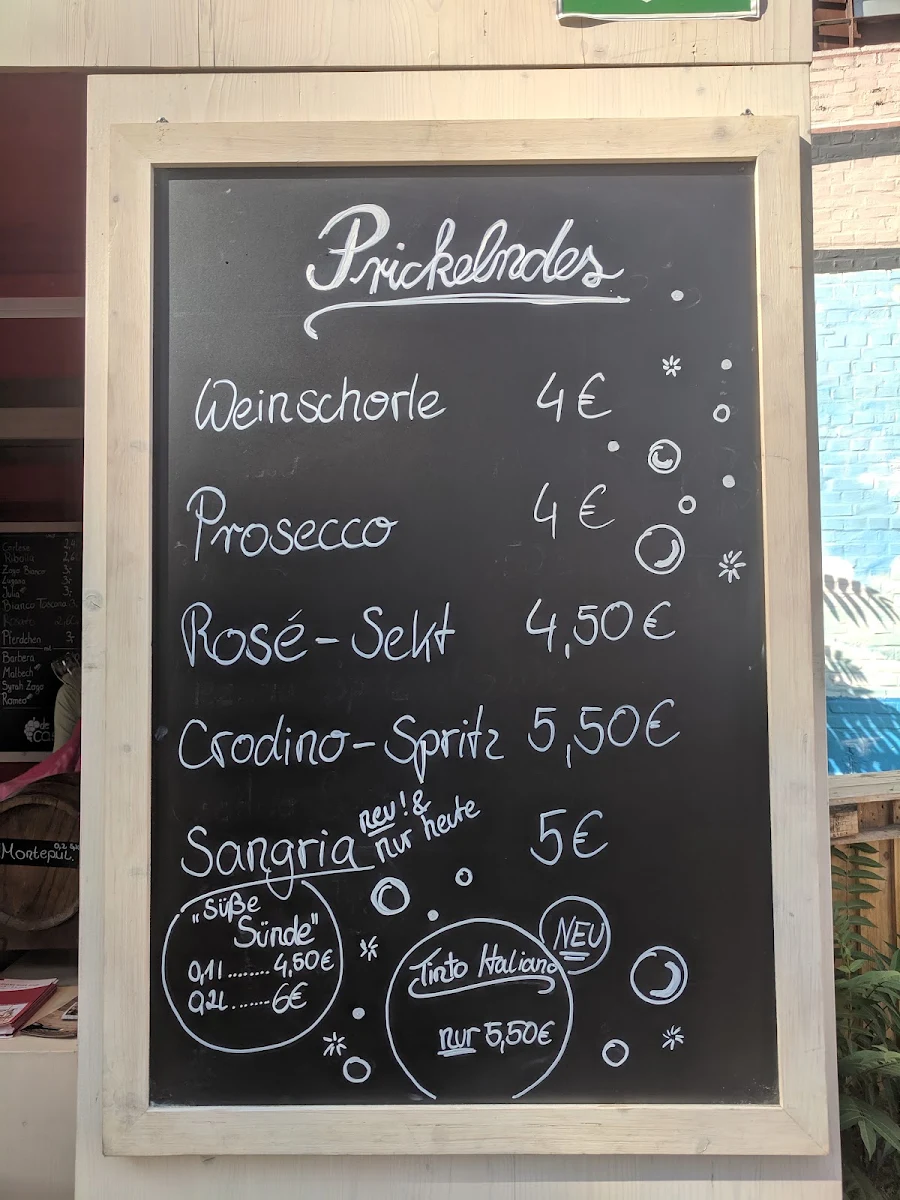 Prickelndes
Weinschorle 4€
Prosecco 4€
Rosé-Sekt 4,50€
Crodino-Spritz 5,50€
Sangria neu! & 5€
nur heute
"Süße
Sünde"
0,1l........4,50€
0,2l.......6€
NEU
Tinto Italiano
nur 5,50€
Cortese
Ribolla
Zago Bianco 3,-
Lugana 3,-
Julia 3,-
Bianco Toscana 3,
Rosato
Pferdchen 3,-
Barbera
Malbech
Syrah Zago
Romeo
de
Montepul. 0,2